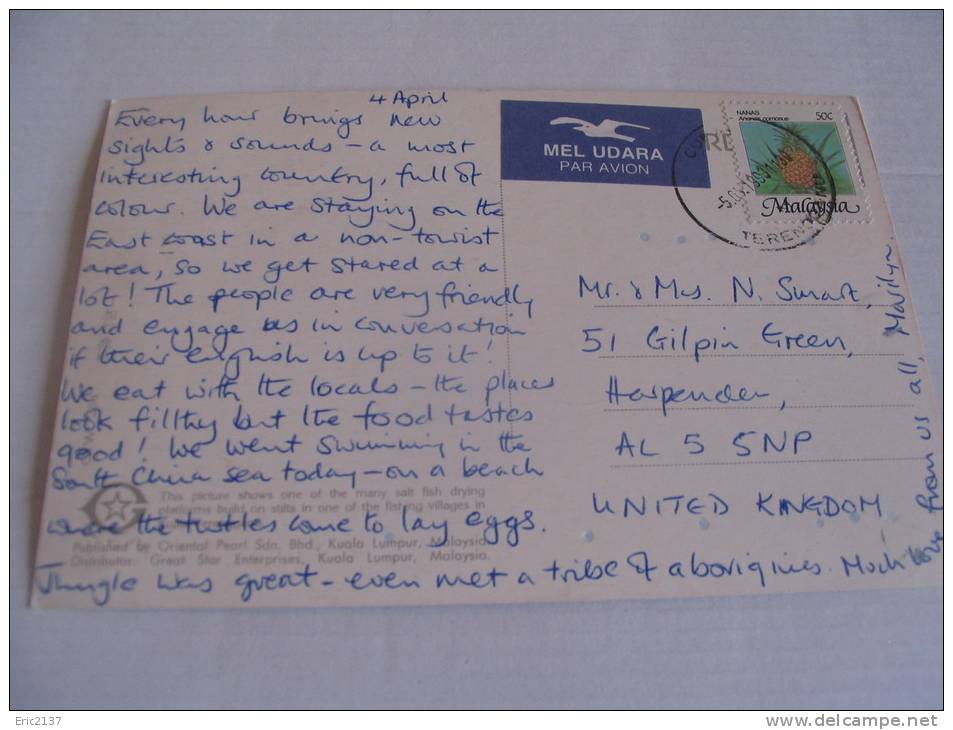 4 April
Every hour brings new
sights & sounds - a most
interesting country, full of
colour. We are staying on the
East coast in a non-tourist
area, so we get stared at a
lot! The people are very friendly
and engage us in conversation
if their english is up to it!
We eat with the locals - the places
look filthy but the food tastes
good! We went swimming in the
South China sea today - on a beach
where the turtles come to lay eggs.
Jungle was great - even met a tribe of aborigines. Much love from us all, Marilyn
This picture shows one of the many salt fish drying
platforms build on stilts in one of the fishing villages in
Published by Oriental Pearl Sdn. Bhd., Kuala Lumpur, Malaysia.
Distributor: Great Star Enterprises, Kuala Lumpur, Malaysia.
MEL UDARA
PAR AVION
NANAS
Ananas comosus
50C
Malaysia
Mr. & Mrs. N. Smart,
51 Gilpin Green,
Harpenden,
AL 5 5NP
UNITED KINGDOM
Eric2137
www.delcampe.net